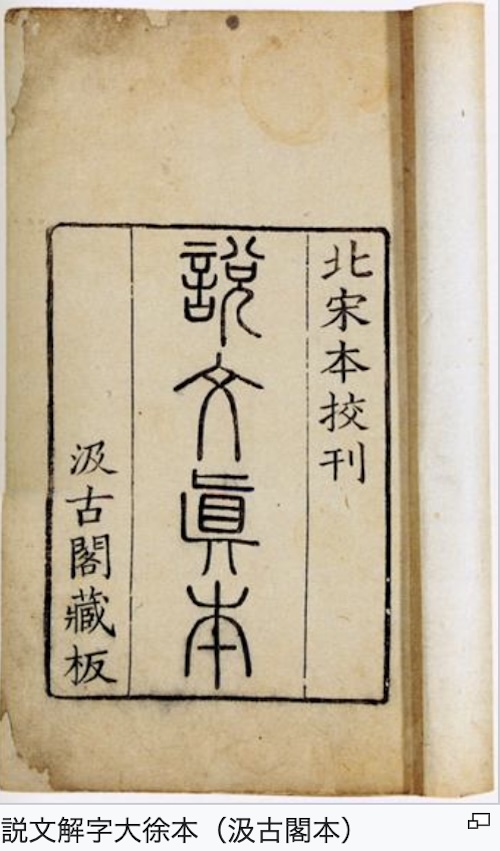 北宋本挍刊
說文眞本
汲古閣藏板
説文解字大徐本（汲古閣本）